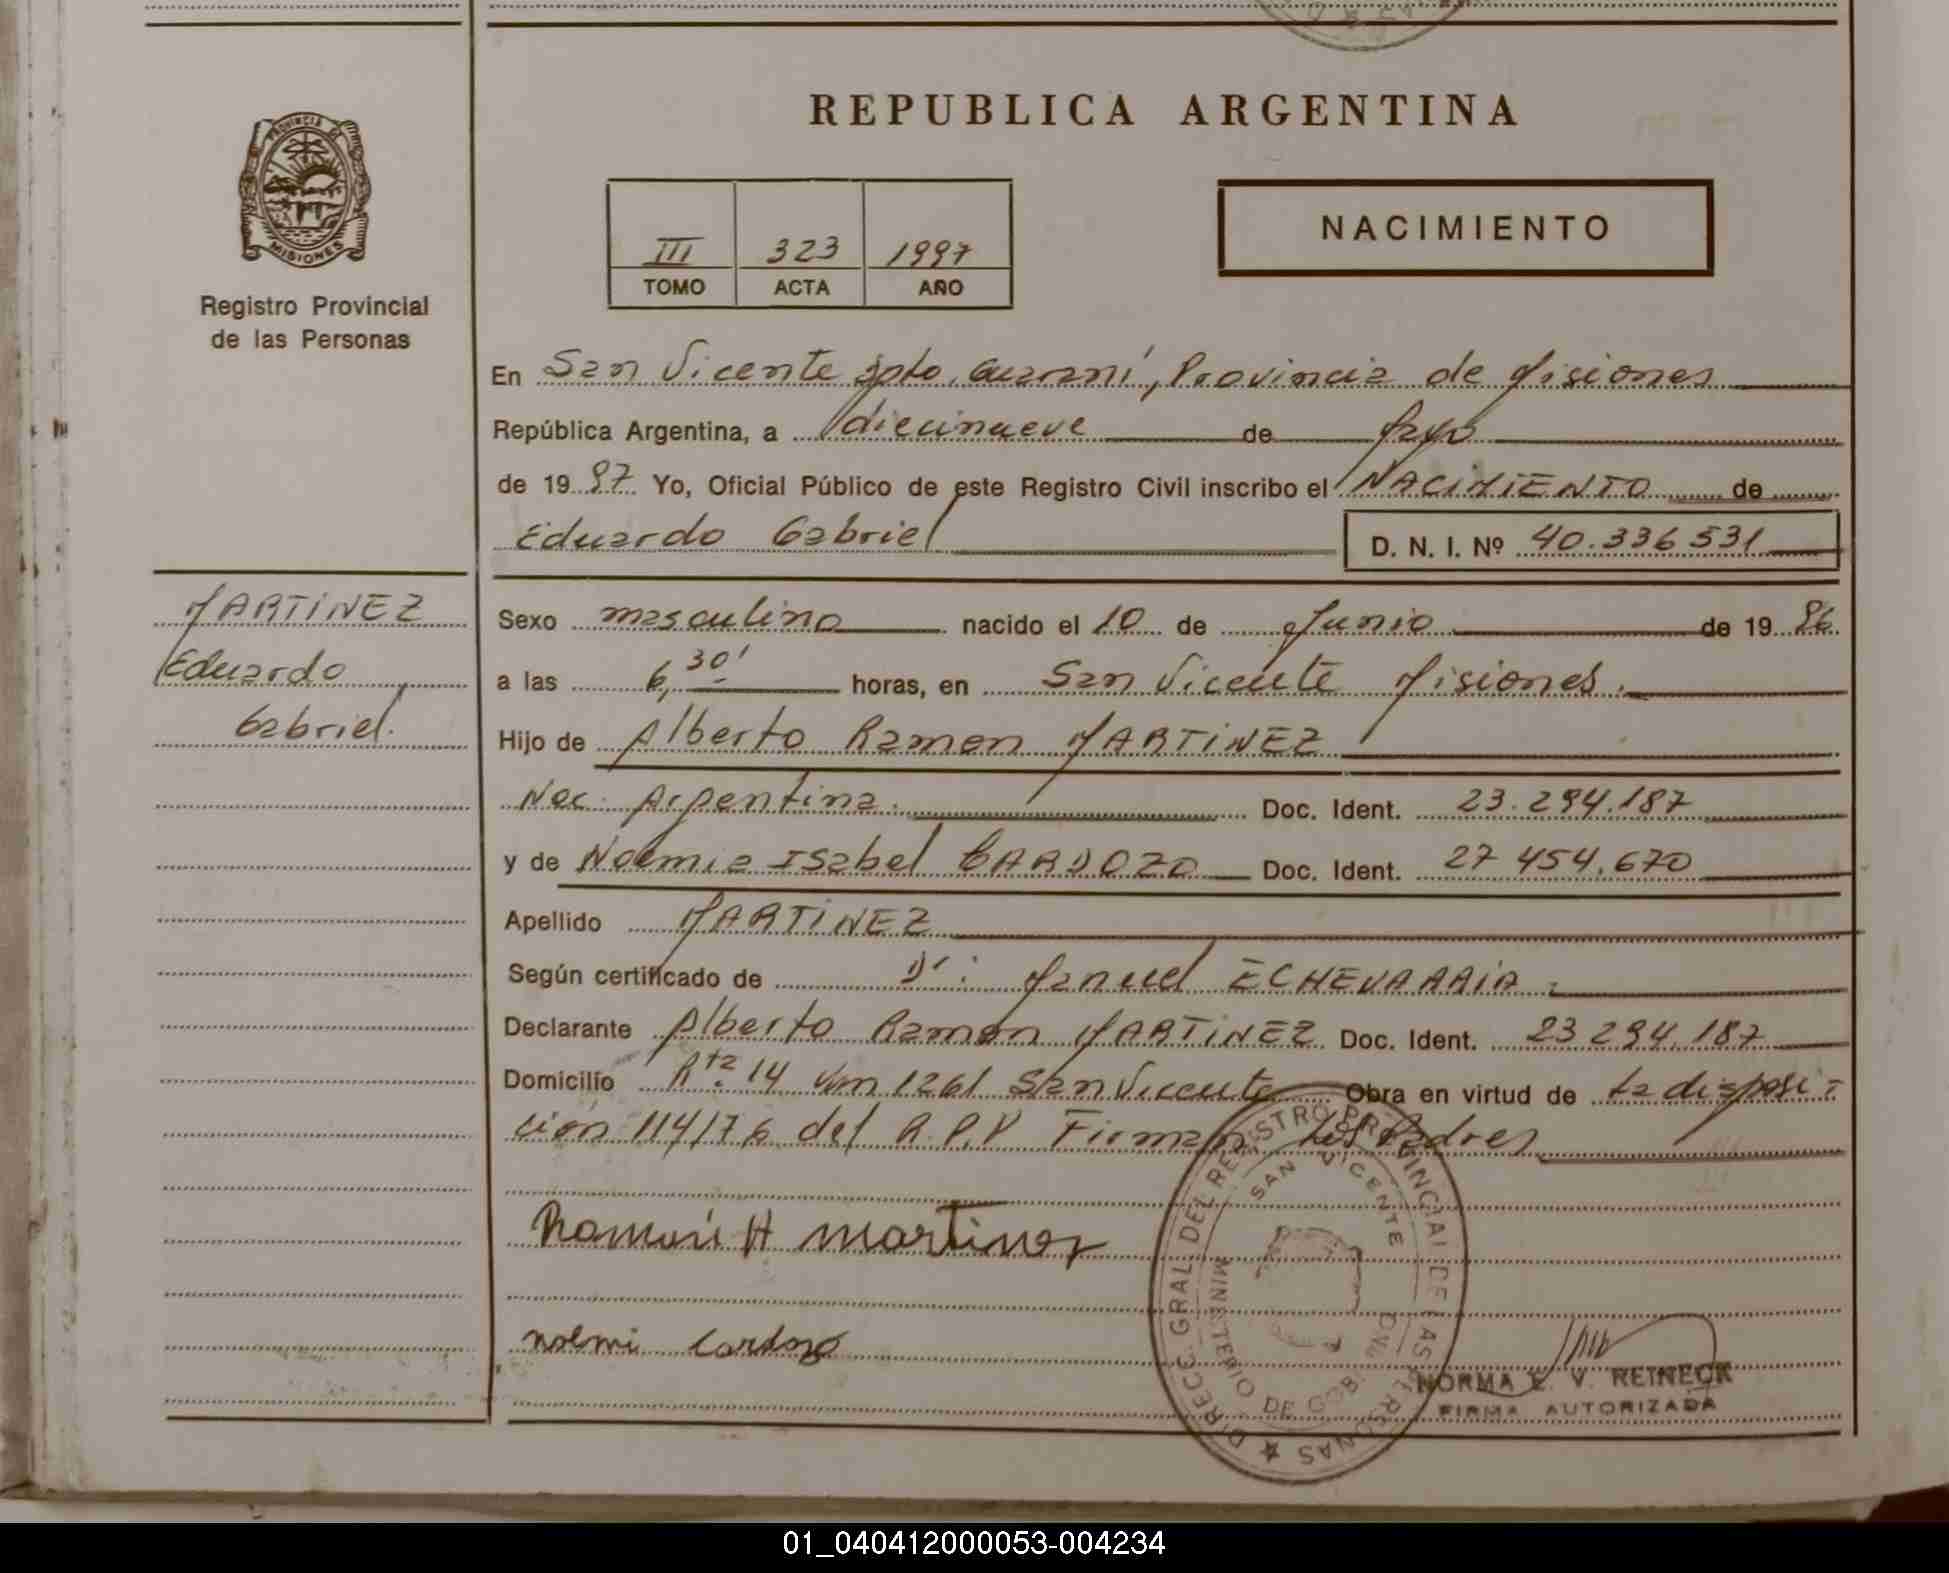 REPUBLICA ARGENTINA
PROVINCIA DE MISIONES
Registro Provincial
de las Personas
III 323 1997
TOMO ACTA AÑO
NACIMIENTO
En San Vicente Dpto. Guaraní, Provincia de Misiones
República Argentina, a diecinueve de Mayo
de 1997 Yo, Oficial Público de este Registro Civil inscribo el NACIMIENTO de
Eduardo Gabriel D. N. I. Nº 40.336.531
MARTINEZ
Eduardo
Gabriel.
Sexo masculino nacido el 10 de Junio de 1986
a las 6,30' horas, en San Vicente Misiones.
Hijo de Alberto Ramon MARTINEZ
Nac. Argentina. Doc. Ident. 23.294.187
y de Noemia Isabel CARDOZO Doc. Ident. 27 454.670
Apellido MARTINEZ
Según certificado de Dr: Manuel ECHEVARRIA.
Declarante Alberto Ramon MARTINEZ Doc. Ident. 23 294.187
Domicilio Rta. 14 Km 1261 San Vicente Obra en virtud de La disposi-
ción 114/76 del R.P.P Firman Los Padres
Ramón A Martinez
noemi Cardozo
DIREC. GRAL. DEL REGISTRO PROVINCIAL DE LAS PERSONAS
SAN VICENTE
MINISTERIO DE GOBIERNO
NORMA E. V. REINECK
FIRMA AUTORIZADA
01_040412000053-004234